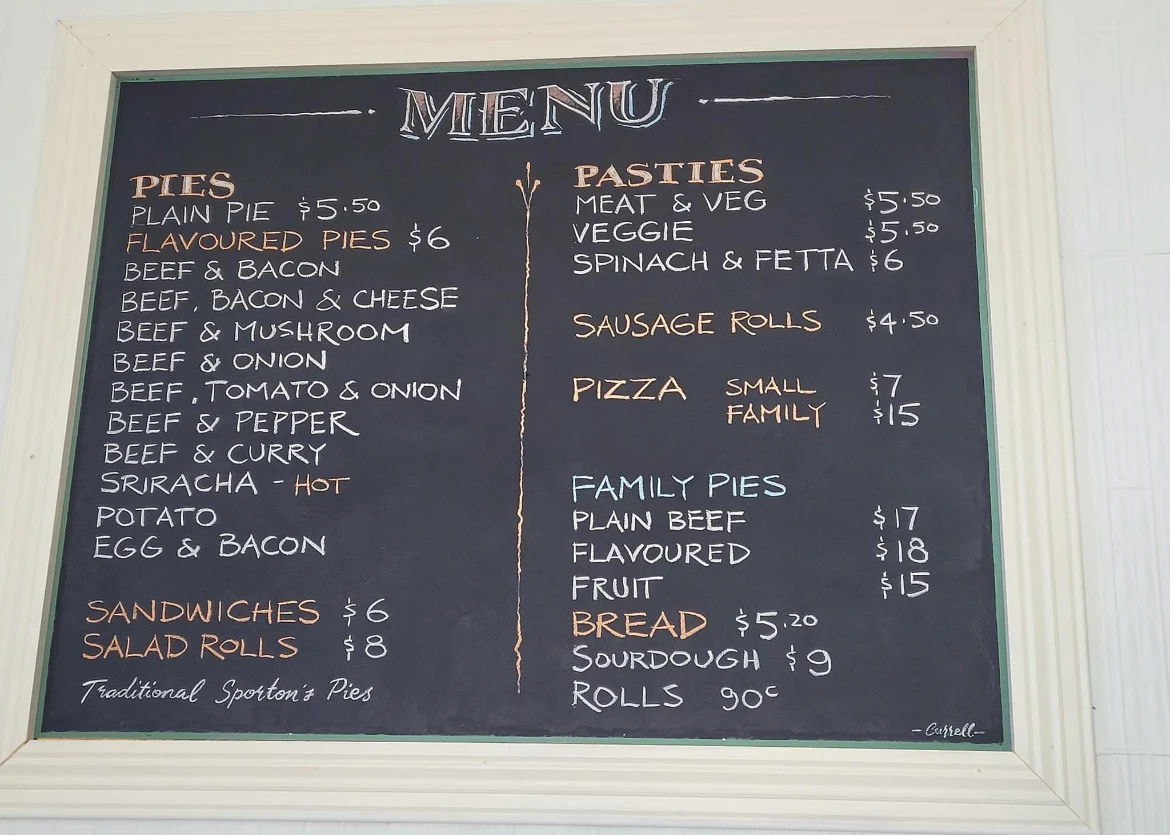 MENU
PIES
PLAIN PIE $5.50
FLAVOURED PIES $6
BEEF & BACON
BEEF, BACON & CHEESE
BEEF & MUSHROOM
BEEF & ONION
BEEF, TOMATO & ONION
BEEF & PEPPER
BEEF & CURRY
SRIRACHA - HOT
POTATO
EGG & BACON
SANDWICHES $6
SALAD ROLLS $8
Traditional Sporton's Pies
PASTIES
MEAT & VEG $5.50
VEGGIE $5.50
SPINACH & FETTA $6
SAUSAGE ROLLS $4.50
PIZZA SMALL $7
FAMILY $15
FAMILY PIES
PLAIN BEEF $17
FLAVOURED $18
FRUIT $15
BREAD $5.20
SOURDOUGH $9
ROLLS 90c